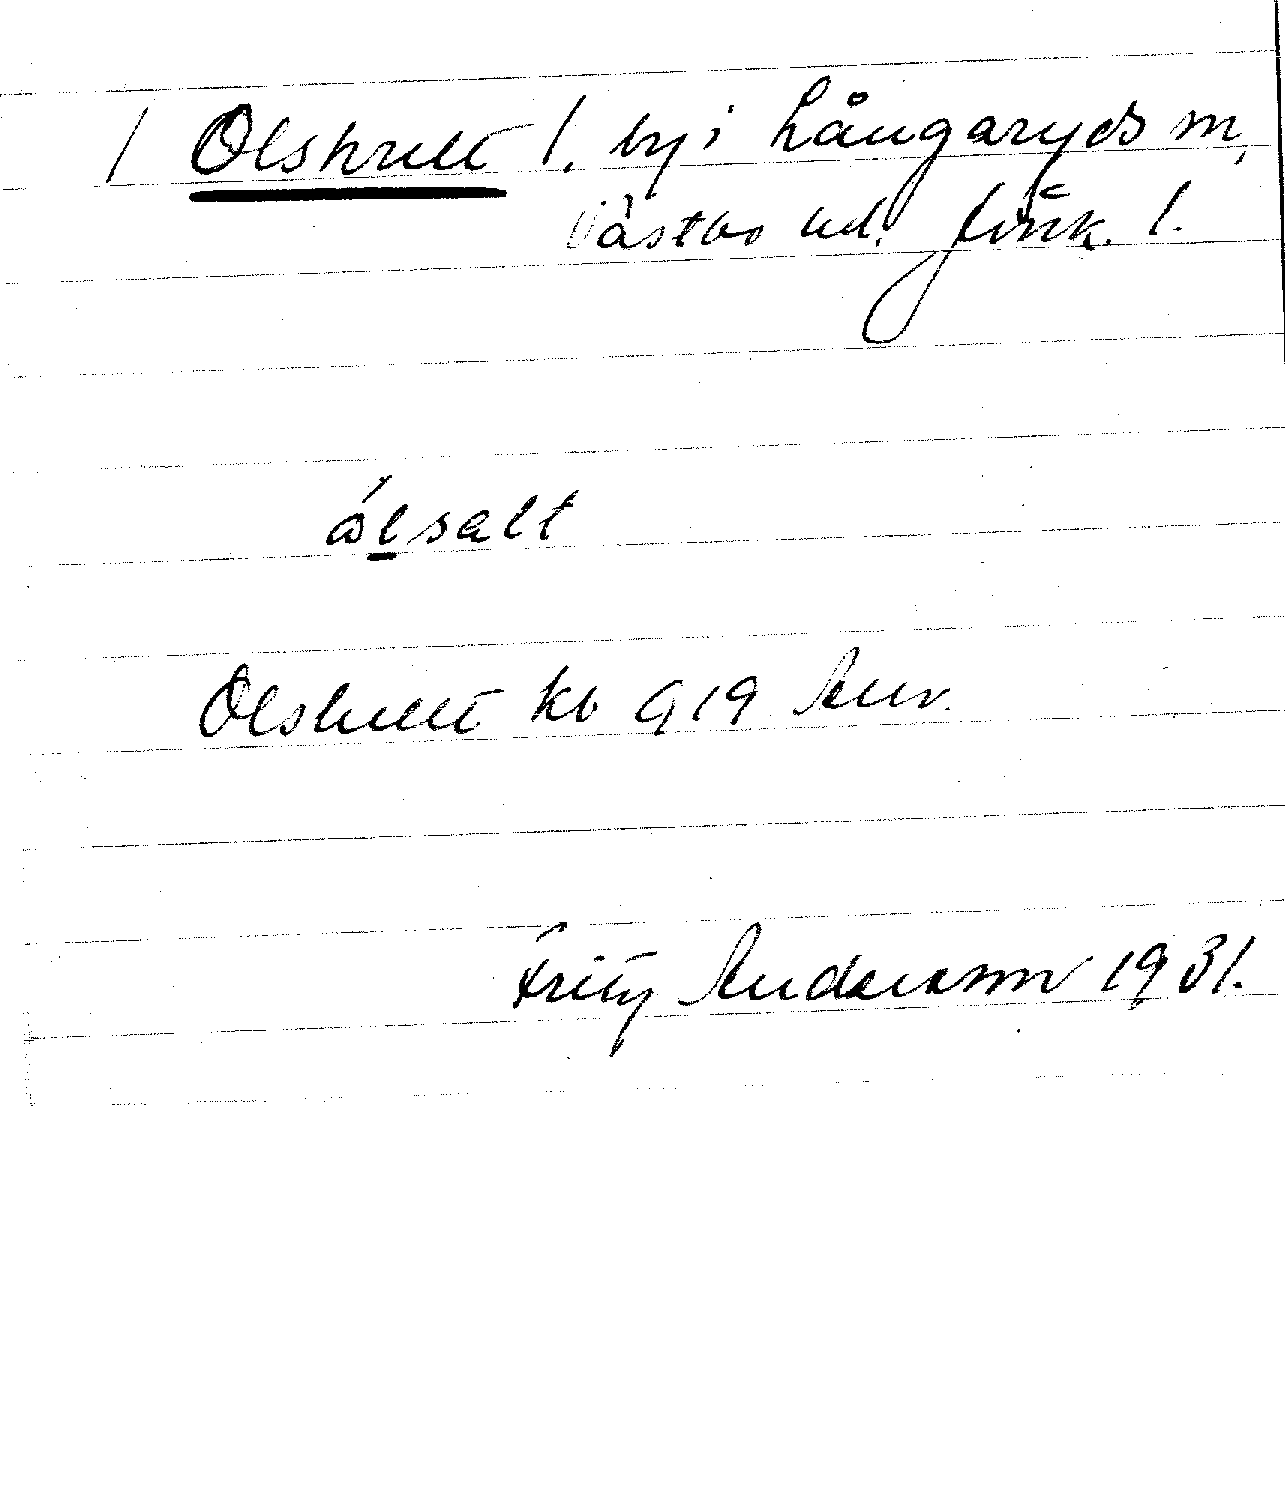 / Olshult /. by i Långaryds sn,
Västbo hd. Jönk. l.
ólsalt
Olshult kb 919 Anv.
Fritz Andersson 1931.